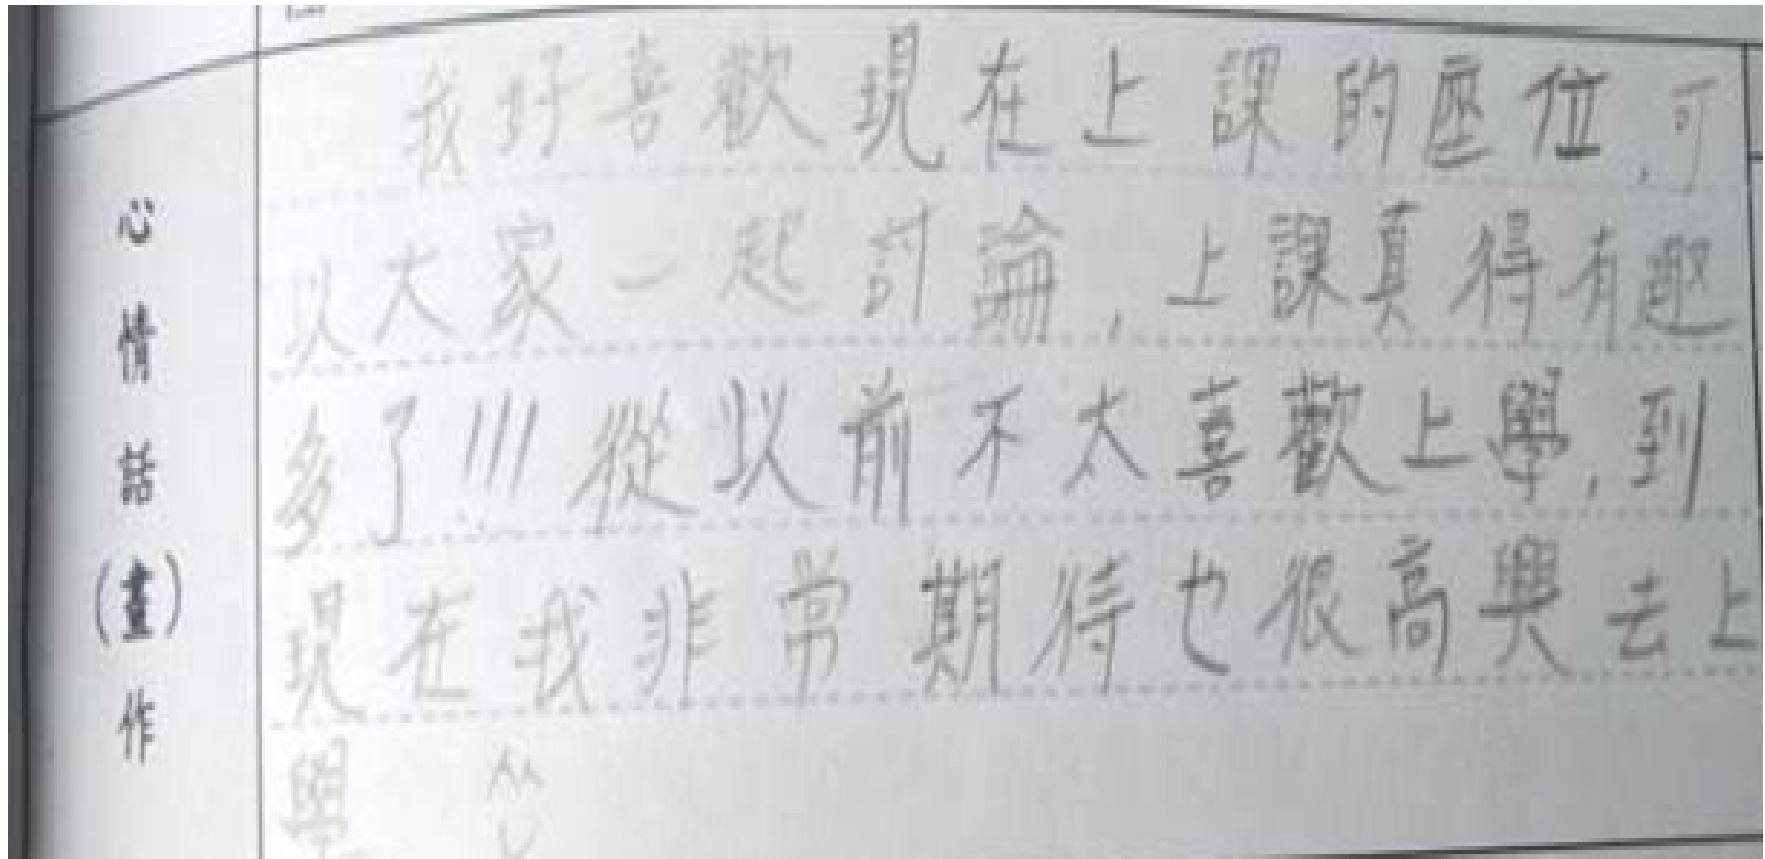 心情話(畫)作
我好喜歡現在上課的座位,可
以大家一起討論,上課真得有趣
多了!!!從以前不太喜歡上學,到
現在我非常期待也很高興去上
學 ^^